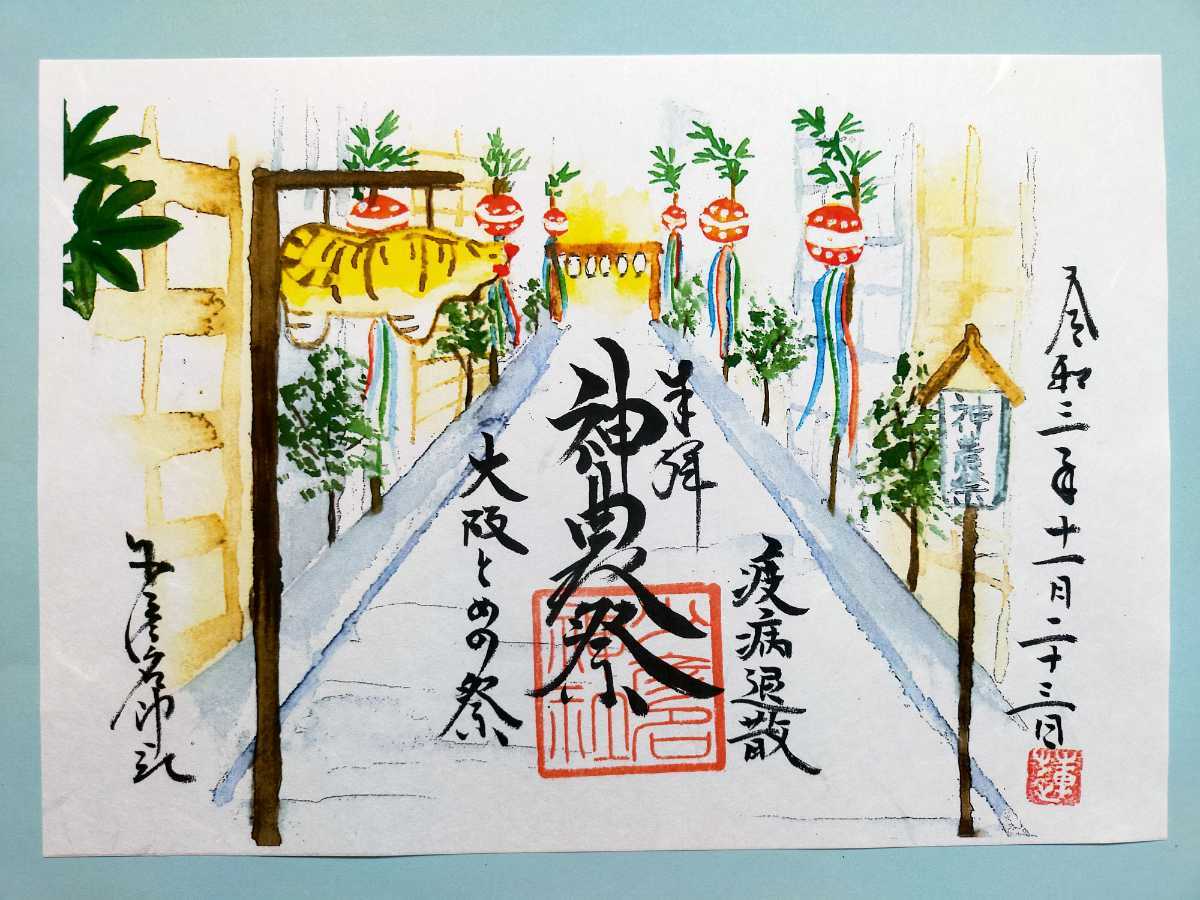 令和三年十一月二十三日
蓮
神農祭
疫病退散
奉拝
神農祭
少彦名神社
大阪とめの祭